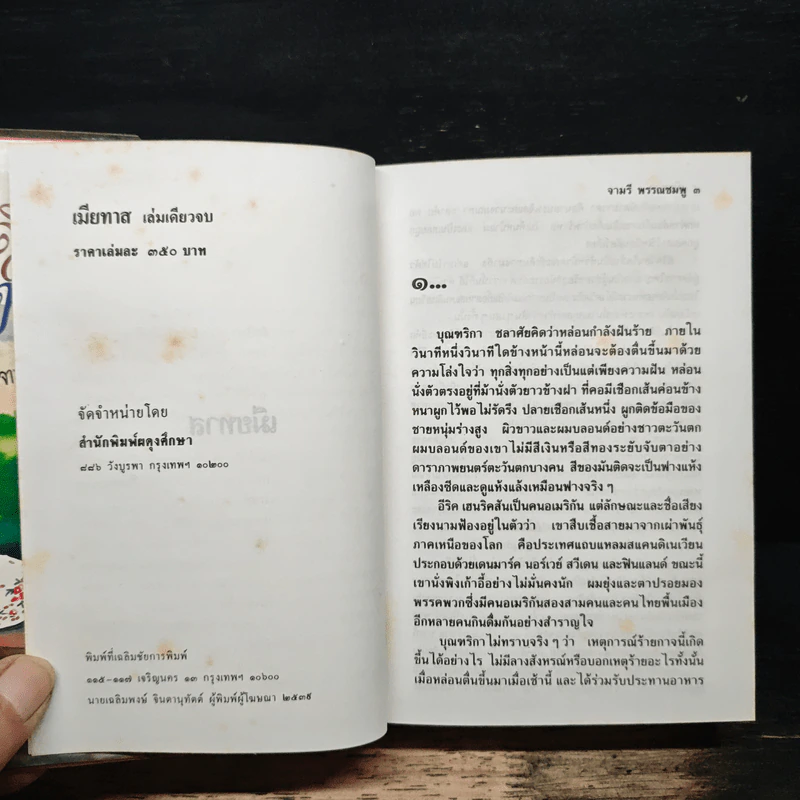 เมียทาส เล่มเดียวจบ
ราคาเล่มละ ๓๕๐ บาท
จัดจำหน่ายโดย
สำนักพิมพ์ผดุงศึกษา
๘๘๖ วังบูรพา กรุงเทพฯ ๑๐๒๐๐
พิมพ์ที่เฉลิมชัยการพิมพ์
๑๑๕-๑๑๗ เจริญนคร ๑๓ กรุงเทพฯ ๑๐๖๐๐
นายเฉลิมพงษ์ จินดานุทัตต์ ผู้พิมพ์ผู้โฆษณา ๒๕๓๙
จามรี พรรณชมพู ๓
๑...
บุณฑริกา ชลาศัยคิดว่าหล่อนกำลังฝันร้าย ภายใน
วินาทีหนึ่งวินาทีใดข้างหน้านี้หล่อนจะต้องตื่นขึ้นมาด้วย
ความโล่งใจว่า ทุกสิ่งทุกอย่างเป็นแต่เพียงความฝัน หล่อน
นั่งตัวตรงอยู่ที่ม้านั่งตัวยาวข้างฝา ที่คอมีเชือกเส้นค่อนข้าง
หนาผูกไว้พอไม่รัดรึง ปลายเชือกเส้นหนึ่ง ผูกติดข้อมือของ
ชายหนุ่มร่างสูง ผิวขาวและผมบลอนด์อย่างชาวตะวันตก
ผมบลอนด์ของเขาไม่มีสีเงินหรือสีทองระยับจับตาอย่าง
ดาราภาพยนตร์ตะวันตกบางคน สีของมันติดจะเป็นฟางแห้ง
เหลืองซีดและดูแห้งแล้งเหมือนฟางจริง ๆ
อีริค เฮนริคสันเป็นคนอเมริกัน แต่ลักษณะและชื่อเสียง
เรียงนามฟ้องอยู่ในตัวว่า เขาสืบเชื้อสายมาจากเผ่าพันธุ์
ภาคเหนือของโลก คือประเทศแถบแหลมสแคนดิเนเวียน
ประกอบด้วยเดนมาร์ค นอร์เวย์ สวีเดน และฟินแลนด์ ขณะนี้
เขานั่งพิงเก้าอี้อย่างไม่มั่นคงนัก ผมยุ่งและตาปรอยมอง
พรรคพวกซึ่งมีคนอเมริกันสองสามคนและคนไทยพื้นเมือง
อีกหลายคนกินดื่มกันอย่างสำราญใจ
บุณฑริกาไม่ทราบจริง ๆ ว่า เหตุการณ์ร้ายกาจนี้เกิด
ขึ้นได้อย่างไร ไม่มีลางสังหรณ์หรือบอกเหตุร้ายอะไรทั้งนั้น
เมื่อหล่อนตื่นขึ้นมาเมื่อเช้านี้ และได้ร่วมรับประทานอาหาร